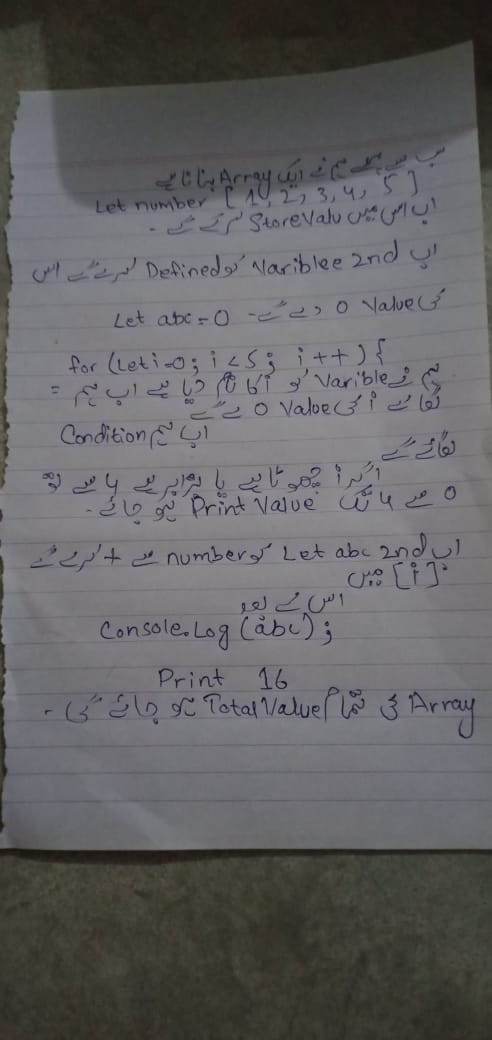 سب سے پہلے ہم نے ایک Array بنانا ہے
Let number [1, 2, 3, 4, 5]
اب اس میں Store Valu کرے گے -
اب 2nd Variblee کو Defined کرے گے اس
کی Value 0 دے گے - Let abc = 0
for (Let i=0; i<5; i++) {
ہم نے Varible کو i کا نام دیا ہے اب ہم =
لگائے i کی Value 0 دے گے
اب ہم Condition
لگائے گے
اگر i چھوٹا ہے یا برابر ہے 4 سے تو
0 سے 4 تک Print Value ہو جائے -
اب 2nd Let abc کو number سے + کرے گے
[i] میں
اس کے بعد
Console.Log (abc);
Print 16
Array کی تمام Total Value ہو جائے گی -